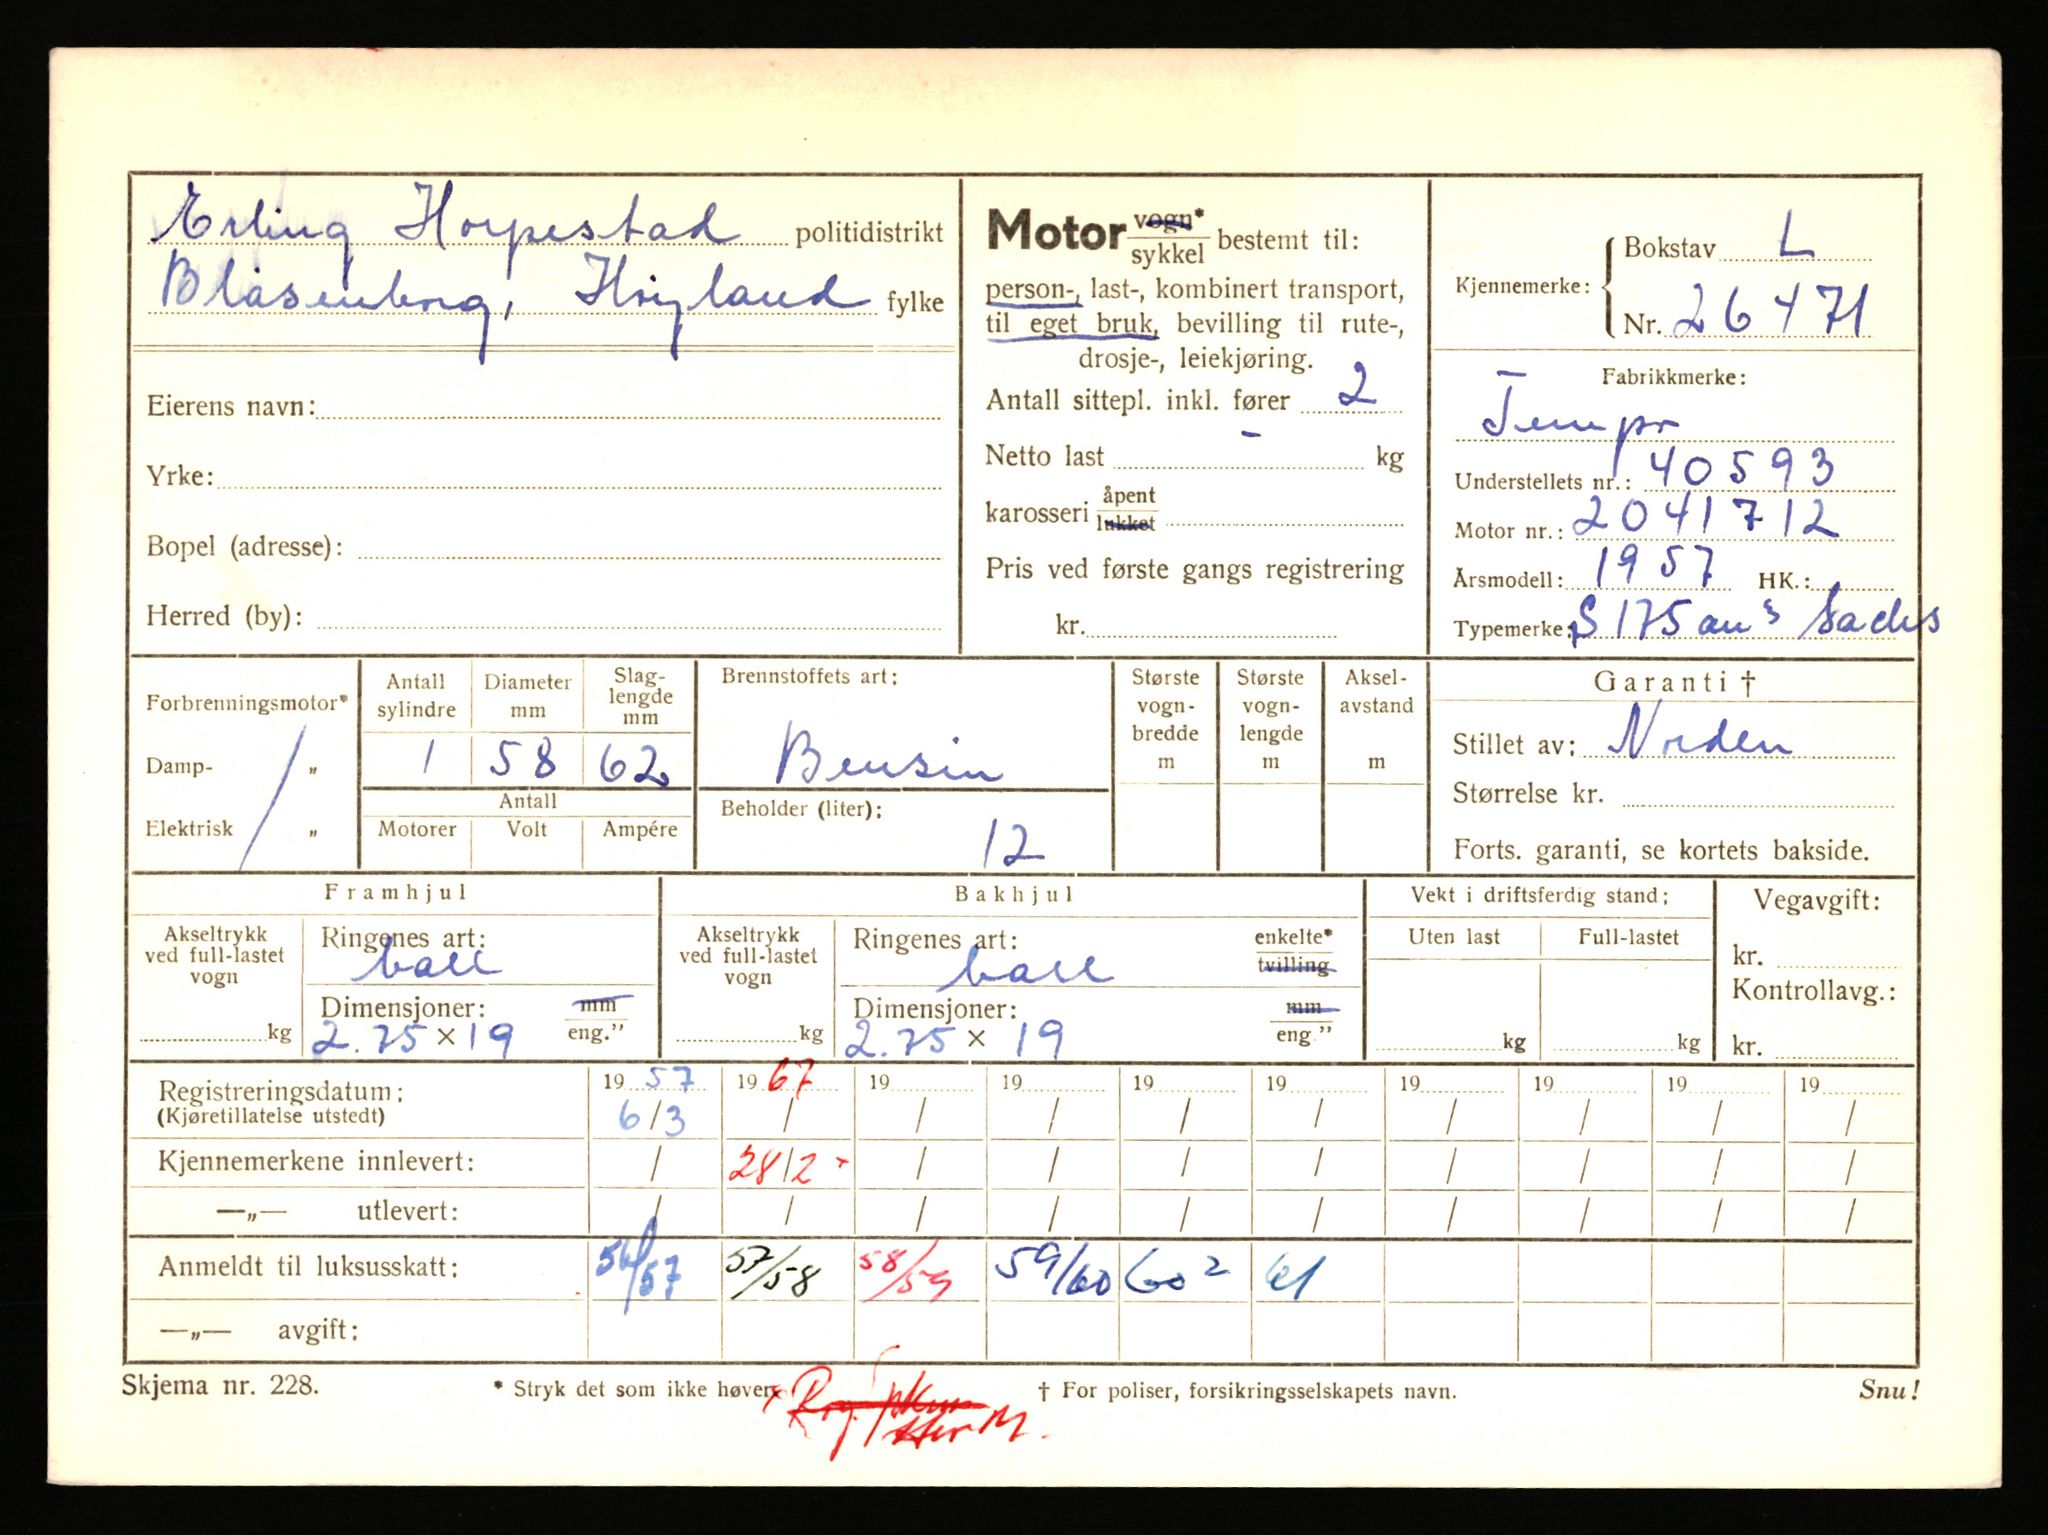 Erling Horpestad politidistrikt
Blåsenborg, Høyland fylke
Eierens navn:
Yrke:
Bopel (adresse):
Herred (by):
Motor vogn* sykkel bestemt til:
person-, last-, kombinert transport,
til eget bruk, bevilling til rute-,
drosje-, leiekjøring.
Antall sittepl. inkl. fører 2
Netto last - kg
karosseri åpent lukket
Pris ved første gangs registrering
kr.
Kjennemerke: Bokstav L
Nr. 26471
Fabrikkmerke:
Tempo
Understellets nr.: 40593
Motor nr.: 2041712
Årsmodell: 1957 HK.:
Typemerke: S 175 Sachs
Forbrenningsmotor*
Damp- „
Elektrisk „
Antall sylindre
Diameter mm
Slag-lengde mm
1 58 62
Antall
Motorer Volt Ampére
Brennstoffets art:
Bensin
Beholder (liter):
12
Største vogn-bredde m
Største vogn-lengde m
Aksel-avstand m
Garanti †
Stillet av: Norden
Størrelse kr.
Forts. garanti, se kortets bakside.
Framhjul
Akseltrykk ved full-lastet vogn
kg
Ringenes art:
ball
Dimensjoner: mm eng.”
2.75 x 19
Bakhjul
Akseltrykk ved full-lastet vogn
kg
Ringenes art: enkelte* tvilling
ball
Dimensjoner: mm eng.”
2.75 x 19
Vekt i driftsferdig stand:
Uten last Full-lastet
kg kg
Vegavgift:
kr.
Kontrollavg.:
kr.
Registreringsdatum: 19 57 19 67 19 19 19 19 19 19 19 19
(Kjøretillatelse utstedt) 6/3 / / / / / / / / /
Kjennemerkene innlevert: / 28/2 x / / / / / / / /
—„— utlevert: / / / / / / / / / /
Anmeldt til luksusskatt: 56/57 57/58 58/59 59/60 60² 61
—„— avgift:
Skjema nr. 228. * Stryk det som ikke høver. † For poliser, forsikringsselskapets navn. Snu!